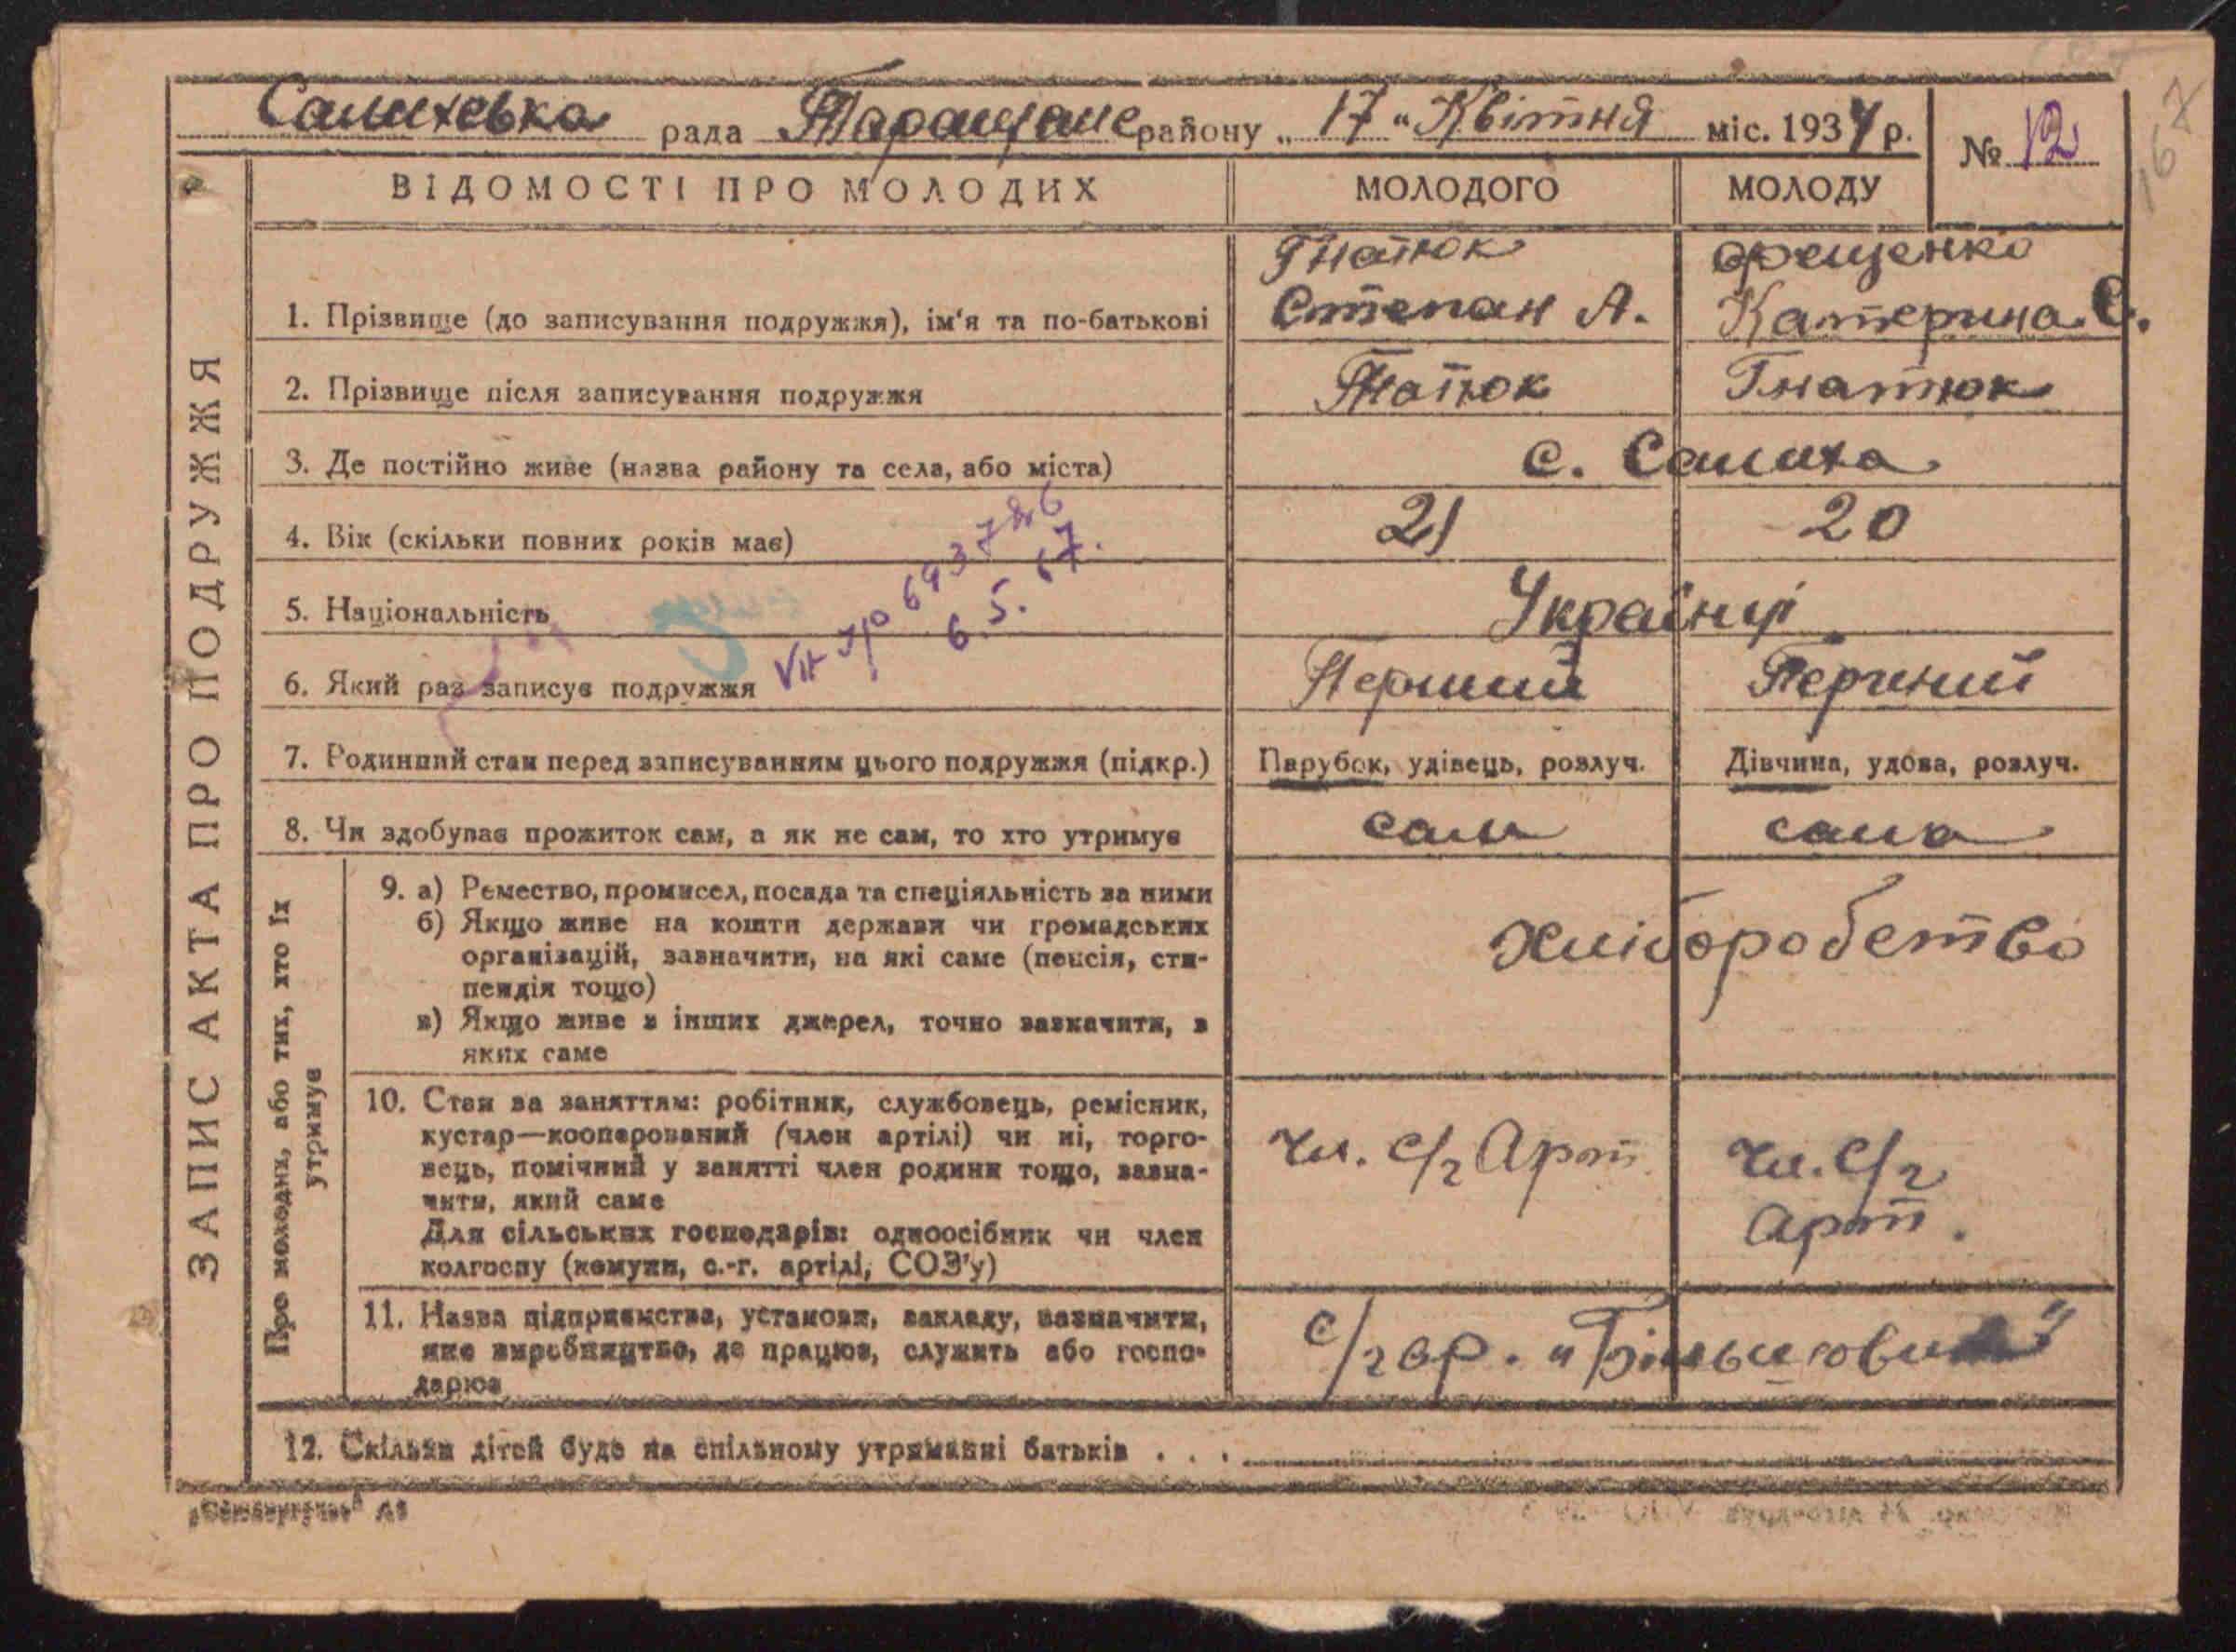 Салихевька рада Таращане району „ 17 “ Квітня міс. 1934 р.
№ 12
167
ЗАПИС АКТА ПРО ПОДРУЖЖЯ
ВІДОМОСТІ ПРО МОЛОДИХ МОЛОДОГО МОЛОДУ
Гнатюк Орещенко
1. Прізвище (до записування подружжя), ім'я та по-батькові Степан А. Катерина С.
2. Прізвище після записування подружжя Гнатюк Гнатюк
3. Де постійно живе (назва району та села, або міста) с. Салиха
4. Вік (скільки повних років має) 21 20
5. Національність Українці
6. Який раз записує подружжя Перший Перший
6937786
6. 5. 67.
7. Родинний стан перед записуванням цього подружжя (підкр.) Парубок, удівець, розлуч. Дівчина, удова, розлуч.
8. Чи здобуває прожиток сам, а як не сам, то хто утримує сам сама
Про молодих, або тих, хто їх
утримує
9. а) Ремество, промисел, посада та спеціяльність за ними
б) Якщо живе на кошти держави чи громадських
організацій, зазначити, на які саме (пенсія, сти-
пендія тощо)
в) Якщо живе з інших джерел, точно зазначити, з
яких саме
хліборобство
10. Стан за заняттям: робітник, службовець, ремісник,
кустар—кооперований (член артілі) чи ні, торго-
вець, помічний у занятті член родини тощо, зазна-
чити, який саме
Для сільських господарів: одноосібник чи член
колгоспу (комуни, с.-г. артілі, СОЗ'у)
чл. с/г Арт. чл. с/г
арт.
11. Назва підприємства, установи, закладу, зазначити,
яке виробництво, де працює, служить або госпо-
дарює
с/г ар. „Більшовик“
12. Скільки дітей буде на спільному утриманні батьків . . .